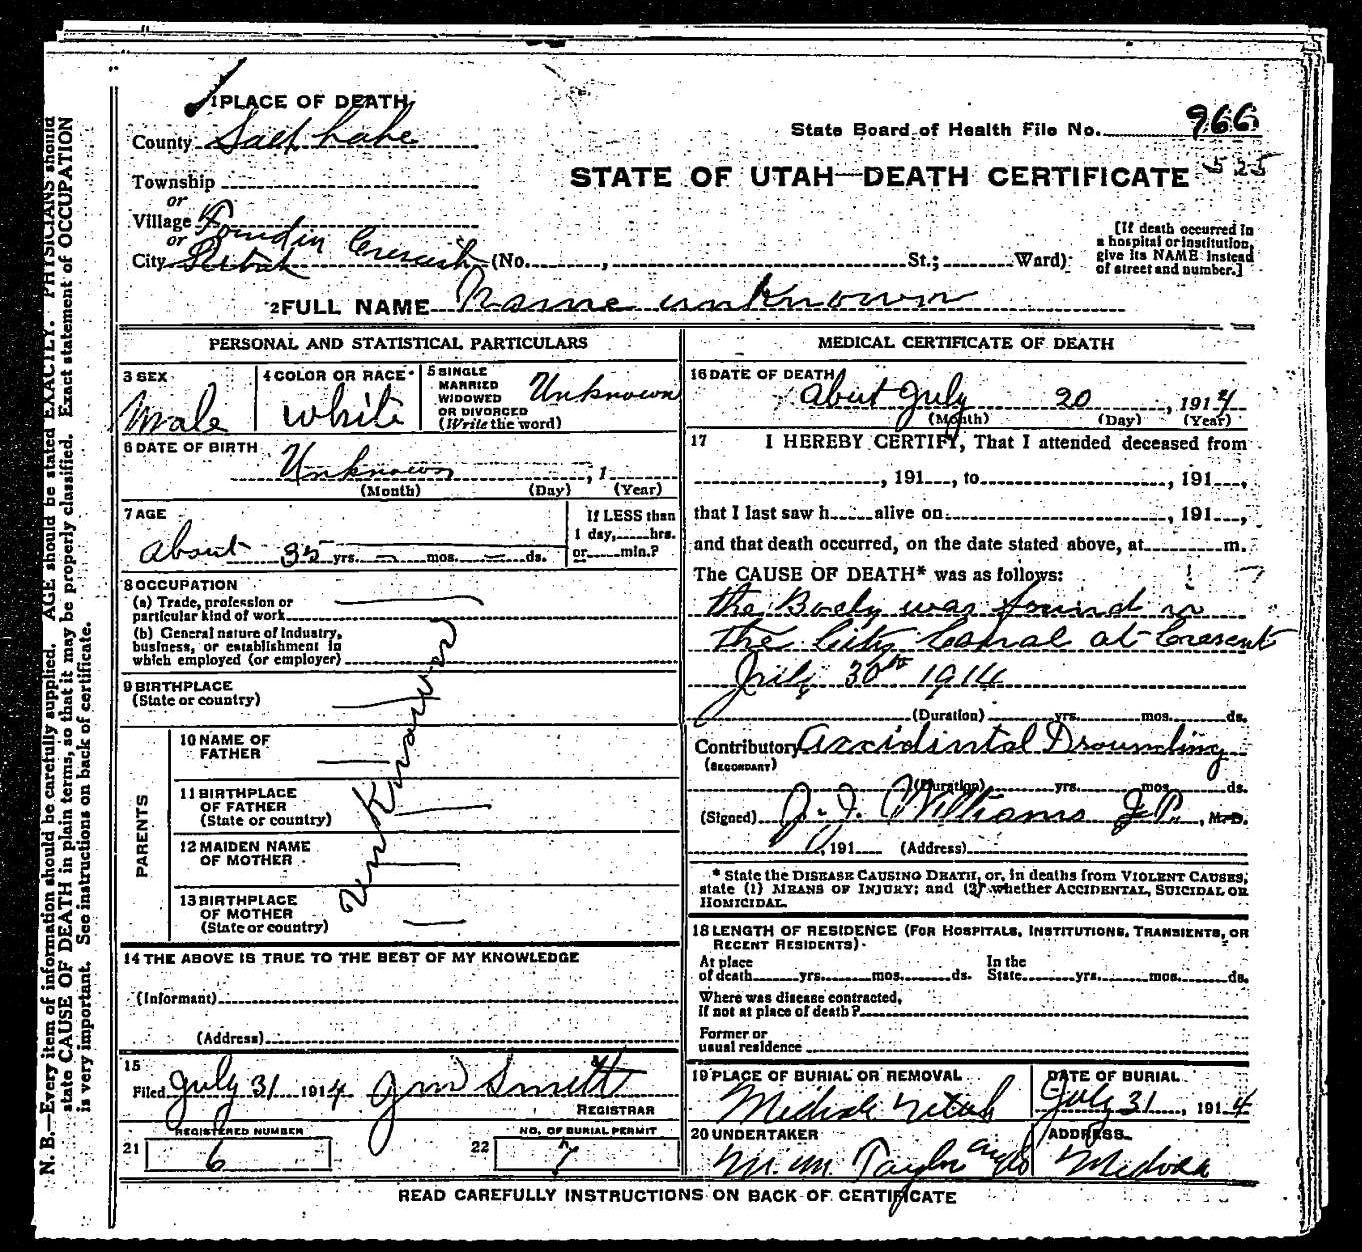 1 PLACE OF DEATH
County Salt Lake
State Board of Health File No. 966
525
STATE OF UTAH—DEATH CERTIFICATE
Township
or
Village Found in Crescent
or
City Utah (No. , St.; Ward)
[If death occurred in
a hospital or institution,
give its NAME instead
of street and number.]
2 FULL NAME Name unknown
PERSONAL AND STATISTICAL PARTICULARS
3 SEX
Male
4 COLOR OR RACE
White
5 SINGLE
MARRIED
WIDOWED
OR DIVORCED
(Write the word)
Unknown
6 DATE OF BIRTH
Unknown , 1
(Month) (Day) (Year)
7 AGE
about 35 yrs. mos. ds.
If LESS than
1 day, hrs.
or min.?
8 OCCUPATION
(a) Trade, profession or
particular kind of work
(b) General nature of Industry,
business, or establishment in
which employed (or employer)
9 BIRTHPLACE
(State or country)
PARENTS
10 NAME OF
FATHER
11 BIRTHPLACE
OF FATHER
(State or country)
12 MAIDEN NAME
OF MOTHER
13 BIRTHPLACE
OF MOTHER
(State or country)
Unknown
14 THE ABOVE IS TRUE TO THE BEST OF MY KNOWLEDGE
(Informant)
(Address)
15
Filed July 31 1914 J M Smith
REGISTRAR
REGISTERED NUMBER
21 6
NO. OF BURIAL PERMIT
22 7
MEDICAL CERTIFICATE OF DEATH
16 DATE OF DEATH
about July 20 , 1914
(Month) (Day) (Year)
17 I HEREBY CERTIFY, That I attended deceased from
, 191 , to , 191 ,
that I last saw h alive on , 191 ,
and that death occurred, on the date stated above, at m.
The CAUSE OF DEATH* was as follows:
the Body was found in
the City Canal at Crescent
July 30th 1914
(Duration) yrs. mos. ds.
Contributory Accidintal Drounding
(SECONDARY)
(Duration) yrs. mos. ds.
(Signed) J. J. Williams J.P. , M.D.
, 191 (Address)
* State the DISEASE CAUSING DEATH, or, in deaths from VIOLENT CAUSES,
state (1) MEANS OF INJURY; and (2) whether ACCIDENTAL, SUICIDAL OR
HOMICIDAL.
18 LENGTH OF RESIDENCE (FOR HOSPITALS, INSTITUTIONS, TRANSIENTS, OR
RECENT RESIDENTS)
At place
of death yrs. mos. ds.
In the
State yrs. mos. ds.
Where was disease contracted,
If not at place of death?
Former or
usual residence
19 PLACE OF BURIAL OR REMOVAL
Midvale Utah
DATE OF BURIAL
July 31 , 1914
20 UNDERTAKER
M. M. Taylor
ADDRESS
READ CAREFULLY INSTRUCTIONS ON BACK OF CERTIFICATE
N. B.—Every item of information should be carefully supplied. AGE should be stated EXACTLY. PHYSICIANS should
state CAUSE OF DEATH in plain terms, so that it may be properly classified. Exact statement of OCCUPATION
is very important. See instructions on back of certificate.